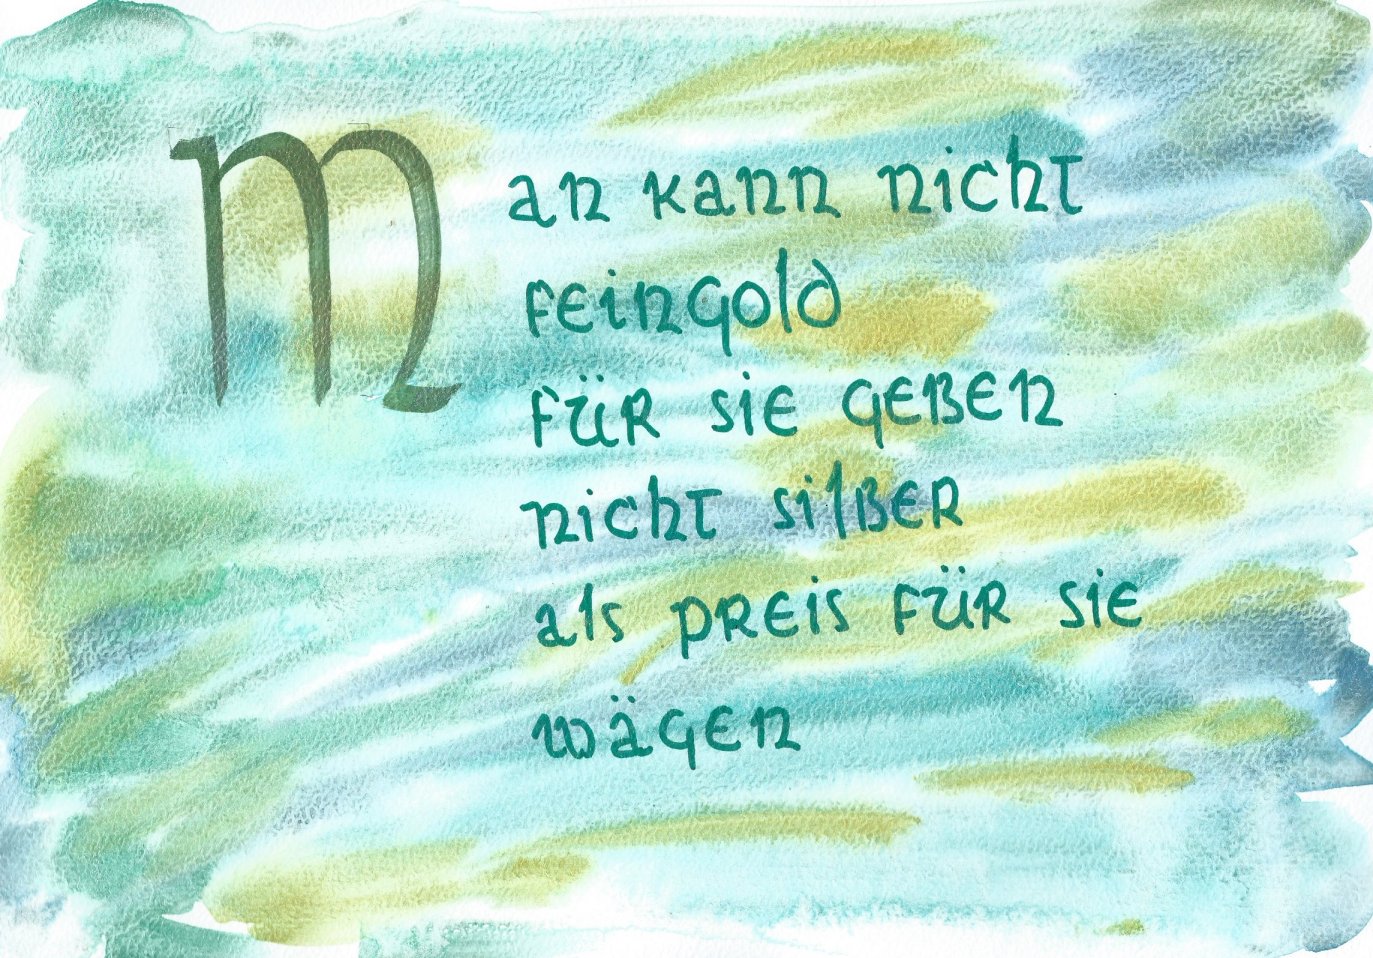 Man kann nicht
feingold
für sie geben
nicht silber
als preis für sie
wägen